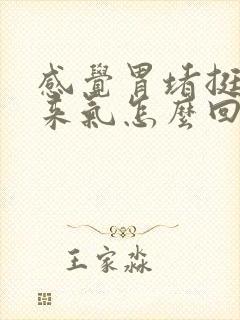 感覺胃堵挺
来氣怎麼回
王家淼